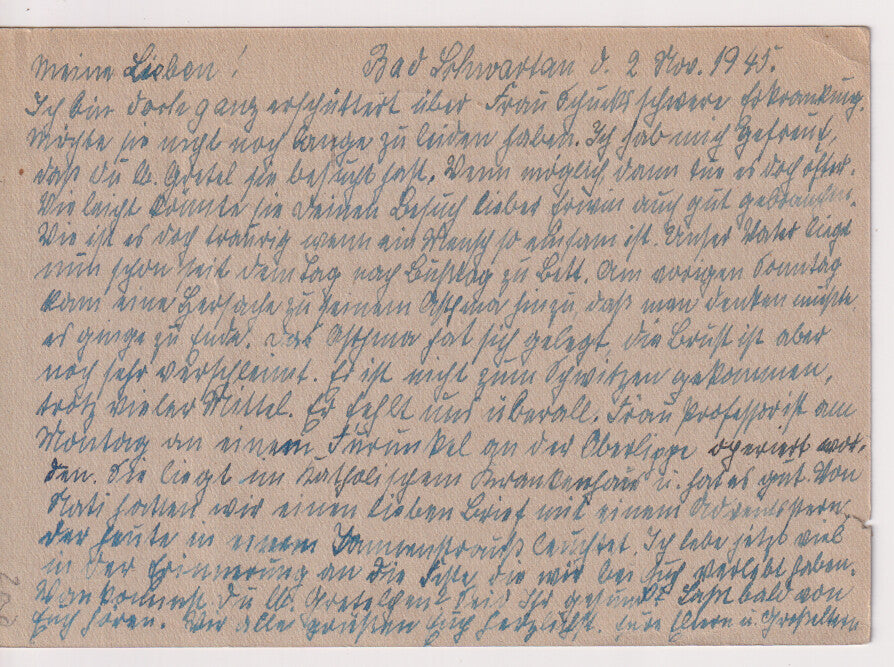 Meine Lieben! Bad Schwartau d. 2 Nov. 1945.
Ich bin doch ganz erschüttert über Frau Schucks schwere Erkrankung.
Möchte sie nicht noch lange zu leiden haben. Ich hab mich gefreut,
daß du lb. Gretel sie besucht hast. Wenn möglich dann tue es doch öfter.
Vielleicht könnte sie deinen Besuch lieber Erwin auch gut gebrauchen.
Wie ist es doch traurig wenn ein Mensch so einsam ist. Unser Vater liegt
nun schon seit dem Tag nach Bußtag zu Bett. Am vorigen Sonntag
kam eine zu seinem Asthma hinzu, daß man denken mußte
es ginge zu Ende. Das Asthma hat sich gelegt, die Brust ist aber
noch sehr verschleimt. Er ist nicht zum Schwitzen gekommen,
trotz vieler Mittel. Er fehlt uns überall. Frau Professor ist am
Montag an einem Furunkel an der Oberlippe operiert wor-
den. Sie liegt im Katholischem Krankenhaus u. hat es gut. Von
hatten wir einen lieben Brief mit einem Adventsstern,
der heute in einem Tannenstrauß leuchtet. Ich lebe jetzt viel
in der Erinnerung an die Feste die wir bei Euch verlebt haben.
Wann kommst du lb. Gretelchen? Seid Ihr gesund? Laßt bald von
Euch hören. Wir alle grüßen Euch herzlichst. Eure Eltern u. Großeltern